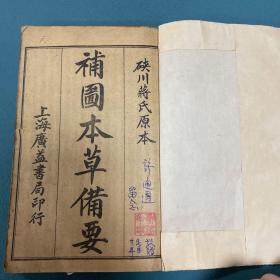 硤川蔣氏原本
補圖本草備要
上海廣益書局印行
留念